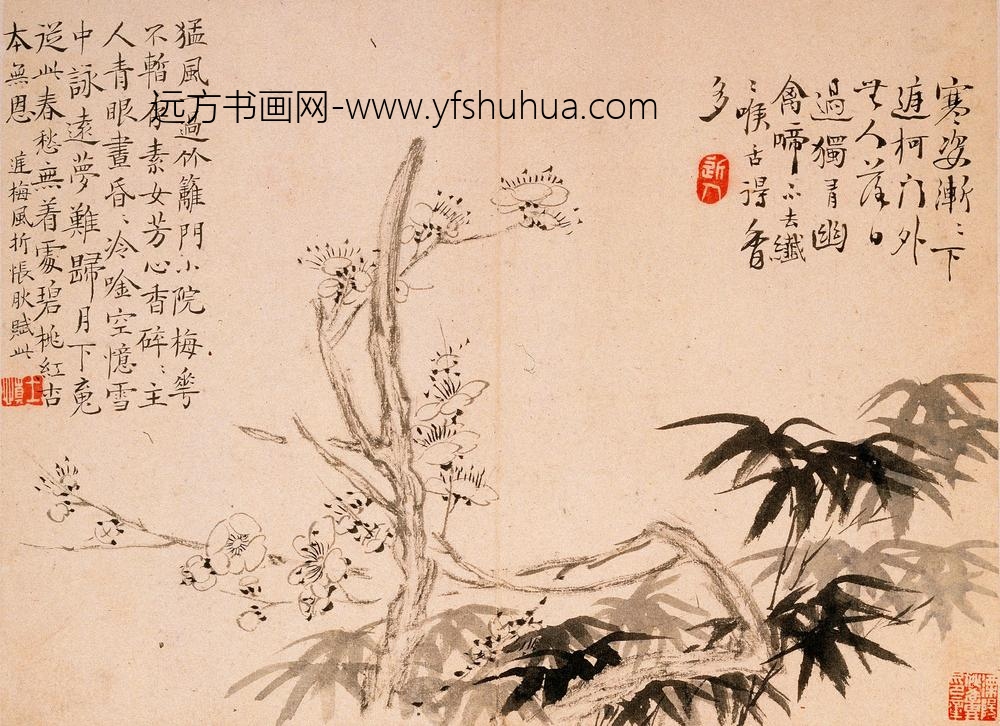 寒姿漸〻下
庭柯门外
無人落日
過獨有幽
禽啼不去纖
〻喉舌得香
多
猛風過竹籬門小院梅華
不暫素女芳心香碎〻主
人青眼晝昏〻冷唫空憶雪
中詠遠夢難歸月下䰟
從此春愁無着處碧桃紅杏
本無恩
庭梅風折悵然賦此
远方书画网-www.yfshuhua.com